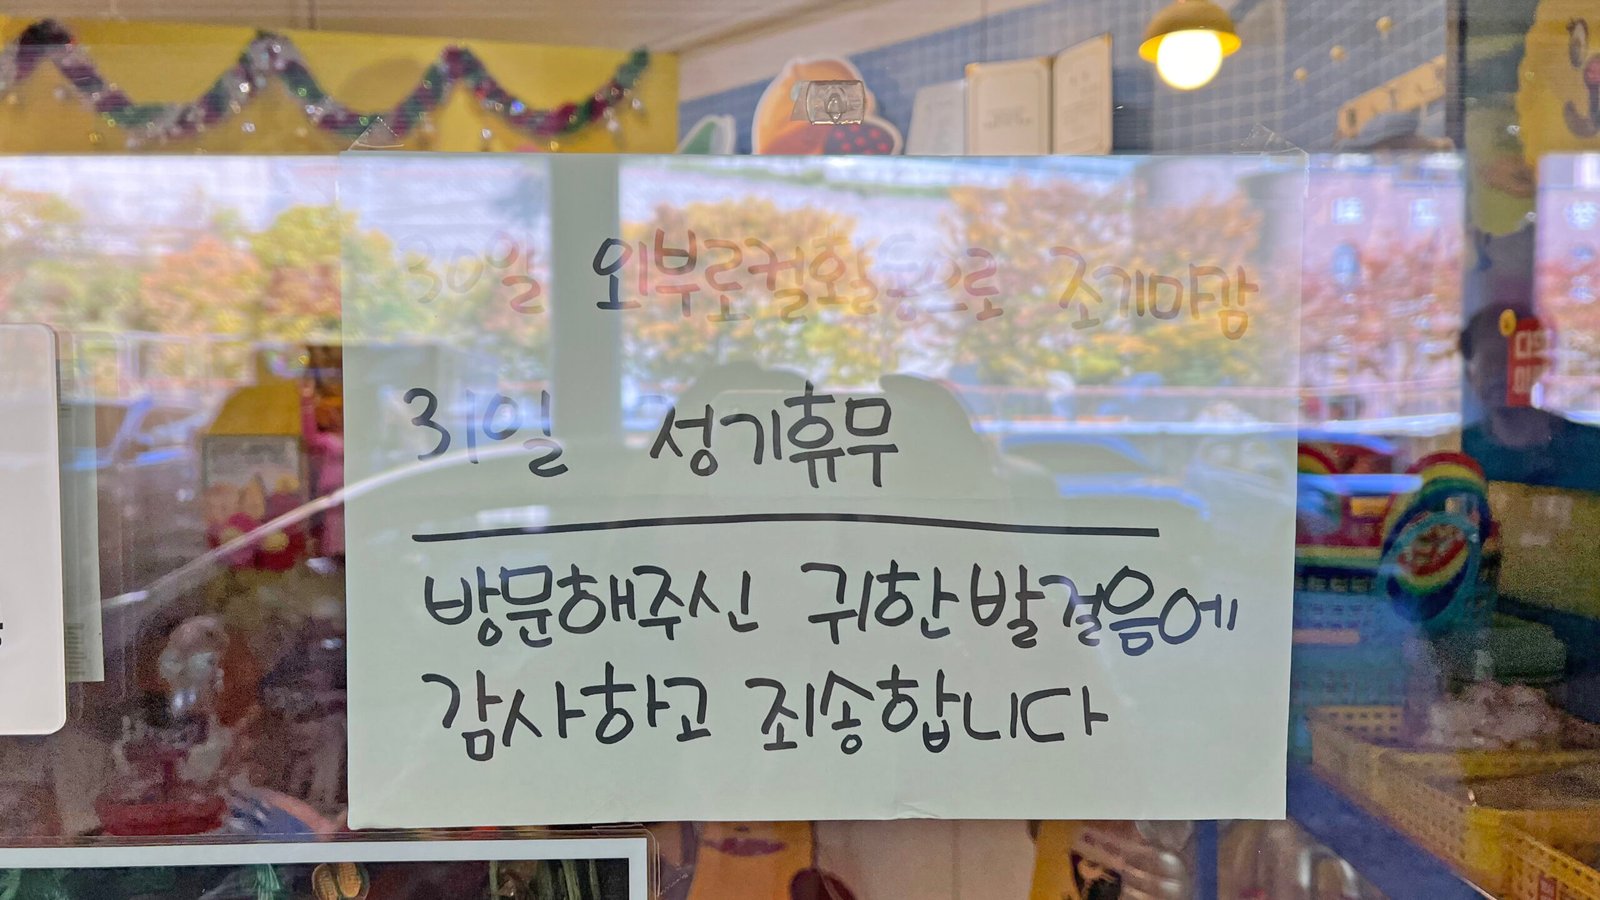 30일 외부로컬활동으로 조기마감
31일 정기휴무
방문해주신 귀한발걸음에
감사하고 죄송합니다